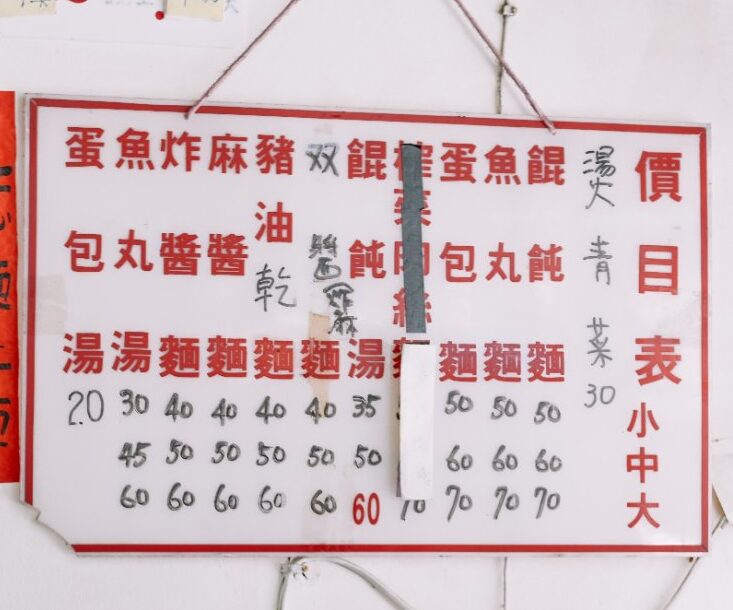 價目表 小 中 大
燙青菜 30
餛飩麵 50 60 70
魚丸麵 50 60 70
蛋包麵 50 60 70
榨菜肉絲麵 70
餛飩湯 35 50 60
双醬(炸麻)麵 40 50 60
豬油乾麵 40 50 60
麻醬麵 40 50 60
炸醬麵 40 50 60
魚丸湯 30 45 60
蛋包湯 20